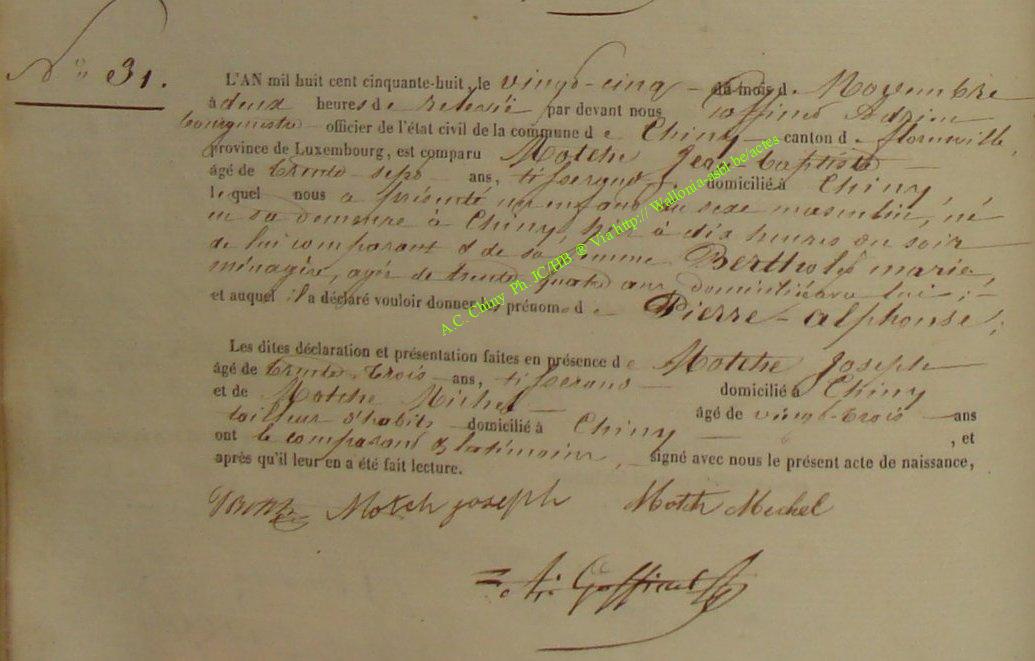 N° 31.
L'AN mil huit cent cinquante-huit, le vingt-cinq du mois de Novembre
à deux heures de relevée par devant nous Goffinet Adrien
Bourgmestre officier de l'état civil de la commune de Chiny canton de florenville,
province de Luxembourg, est comparu Motche Jean baptiste
âgé de trente sept ans, tisserand, domicilié à Chiny
lequel nous a présenté un enfant du sexe masculin, né
en sa demeure à Chiny, hier à dix heures du soir
de lui comparant & de sa femme Bertholé marie,
ménagère, agée de trente quatre ans domiciliée avec lui ;
et auquel il a déclaré vouloir donner les prénoms de Pierre-alphonse ;
Les dites déclaration et présentation faites en présence de Motche Joseph
âgé de trente-trois ans, tisserand domicilié à Chiny
et de Motche Michel âgé de vingt-trois ans
tailleur d'habits domicilié à Chiny , et
ont le comparant & les témoins signé avec nous le présent acte de naissance,
après qu'il leur en a été fait lecture.
Motch joseph Motch Michel
Ad. Goffinet
A.C. Chiny Ph. JC/HB ® Via http:// Wallonia-asbl.be/actes